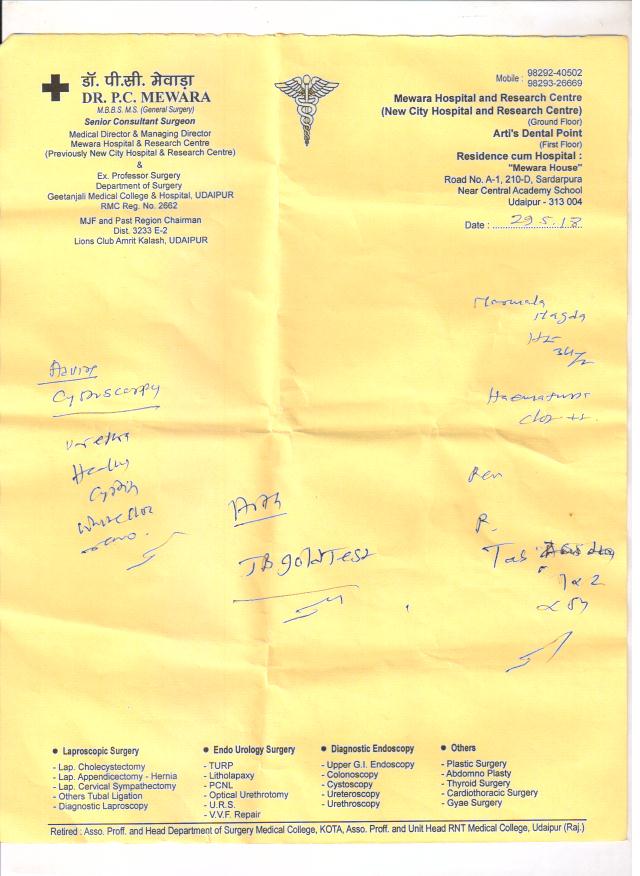 डॉ. पी.सी. मेवाड़ा
DR. P.C. MEWARA
M.B.B.S. M.S. (General Surgery)
Senior Consultant Surgeon
Medical Director & Managing Director
Mewara Hospital & Research Centre
(Previously New City Hospital & Research Centre)
&
Ex. Professor Surgery
Department of Surgery
Geetanjali Medical College & Hospital, UDAIPUR
RMC Reg. No. 2662
MJF and Past Region Chairman
Dist. 3233 E-2
Lions Club Amrit Kalash, UDAIPUR
Mobile : 98292-40502
98293-26669
Mewara Hospital and Research Centre
(New City Hospital and Research Centre)
(Ground Floor)
Arti's Dental Point
(First Floor)
Residence cum Hospital :
"Mewara House"
Road No. A-1, 210-D, Sardarpura
Near Central Academy School
Udaipur - 313 004
Date : 29.5.18
Cystoscopy
urethra
TB gold Test
R.
1 x 2
● Laproscopic Surgery
- Lap. Cholecystectomy
- Lap. Appendicectomy - Hernia
- Lap. Cervical Sympathectomy
- Others Tubal Ligation
- Diagnostic Laproscopy
● Endo Urology Surgery
- TURP
- Litholapaxy
- PCNL
- Optical Urethrotomy
- U.R.S.
- V.V.F. Repair
● Diagnostic Endoscopy
- Upper G.I. Endoscopy
- Colonoscopy
- Cystoscopy
- Ureteroscopy
- Urethroscopy
● Others
- Plastic Surgery
- Abdomno Plasty
- Thyroid Surgery
- Cardiothoracic Surgery
- Gyae Surgery
Retired : Asso. Proff. and Head Department of Surgery Medical College, KOTA, Asso. Proff. and Unit Head RNT Medical College, Udaipur (Raj.)